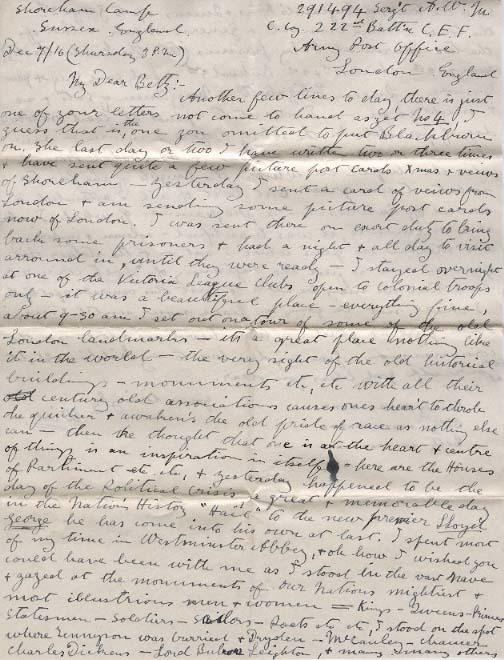 Shoreham Camp
Sussex England
Dec 7/16 (Thursday 3 P.M.)
291494 Serg't A.W.
C. Coy 222nd Batt'n C.E.F.
Army Post Office
London England
My Dear Betty:-
Another few lines to day there is just
one of your letters not come to hand as yet No 4, I
guess that is the one you omitted to put on
on. The last day or two I have written two or three times
& have sent quite a few picture post cards Xmas & veiws
of Shoreham - yesterday I sent a card of veiws from
London & am sending some picture post cards
now of London. I was sent there on escort duty to bring
back some prisoners & had a night & all day to visit
arround in, until they were ready - I stayed overnight
at one of the Victoria League Clubs open to colonial troops
only - it was a beautiful place - everything fine,
about 9-30 am I set out on a tour of some of the old
London landmarks - its a great place nothing like
it in the world - the very sight of the old historical
buildings - monuments etc, etc with all their
old century old associations causes ones heart to throb
the quicker & awaken's the old pride of race as nothing else
can - then the thought that one is at the heart & centre
of things is an inspiration in itself - here are the Houses
of Parliment etc. etc, & yesterday happened to be the
day of the Political Crisis a great & memorable day
in the Nation's History "Hail" to the new premier Lloyd
George he has come into his own at last. I spent most
of my time in Westminster Abbey, & oh how I wished you
could have been with me as I stood in the vast Nave
& gazed at the monuments of Our Nations mightiest &
most illustrious men & women = Kings - Queens - Princes
Statesmen - Soldiers - Sailors - Poets etc etc, I stood on the spot
where Tennyson was burried & Dryden - McCauley - Chaucer
Charles Dickens - Lord Leighton, & many many others